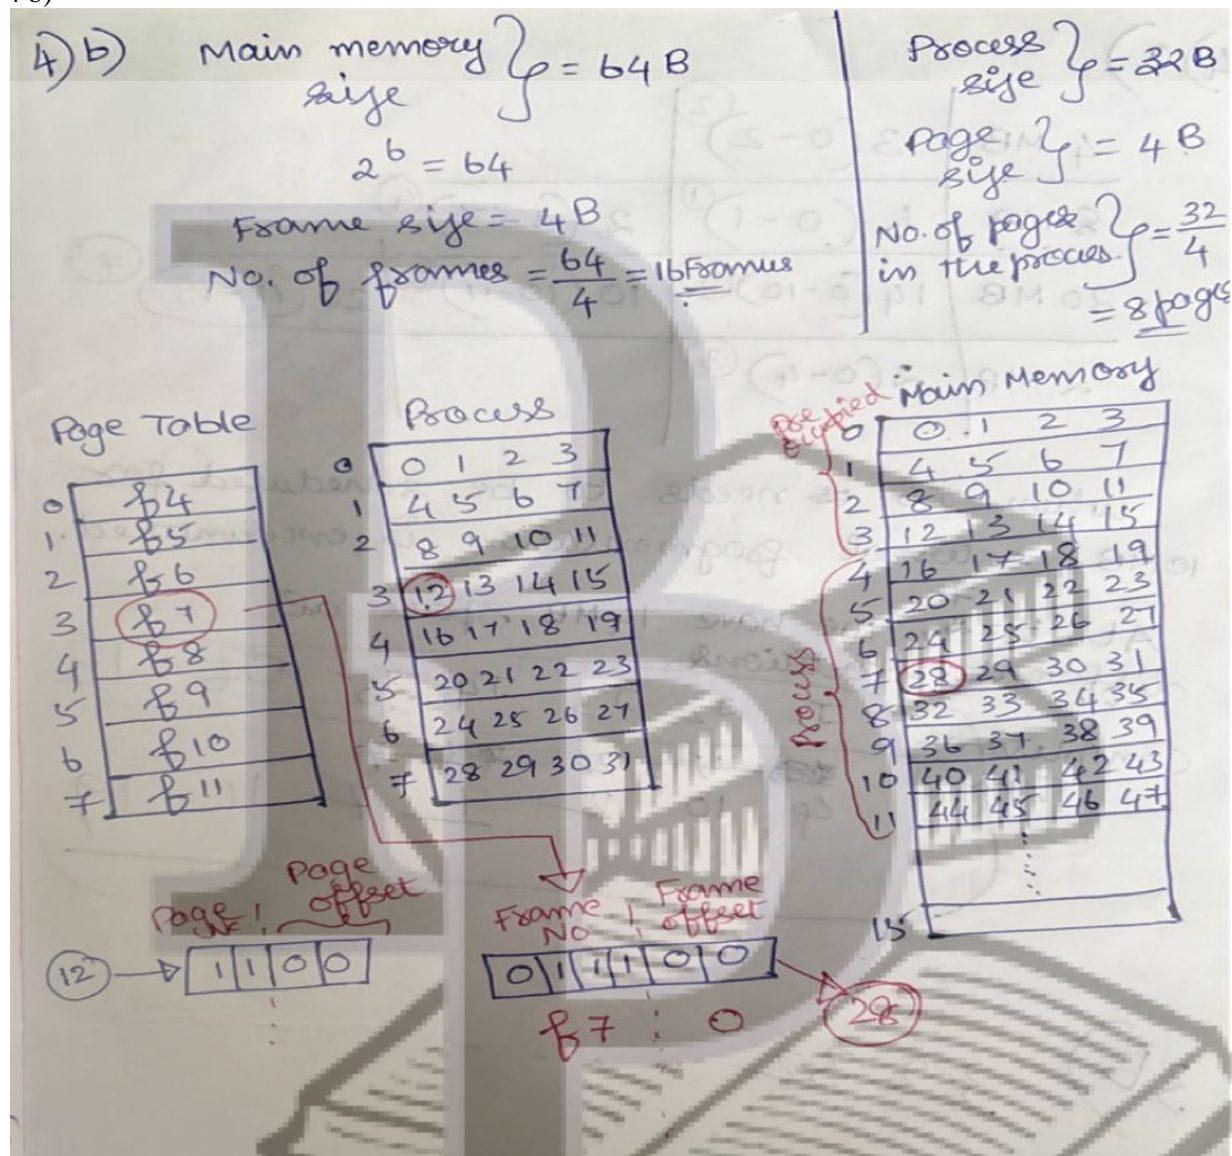 4) b) Main memory size } = 64 B
2^6 = 64
Frame size = 4 B
No. of frames = 64/4 = 16 Frames
Process size } = 32 B
Page size } = 4 B
No. of pages in the process } = 32/4
= 8 pages
Page Table
0 f4
1 f5
2 f6
3 f7
4 f8
5 f9
6 f10
7 f11
Process
0 0 1 2 3
1 4 5 6 7
2 8 9 10 11
3 12 13 14 15
4 16 17 18 19
5 20 21 22 23
6 24 25 26 27
7 28 29 30 31
Main Memory
Pre occupied
0 0 1 2 3
1 4 5 6 7
2 8 9 10 11
3 12 13 14 15
Process
4 16 17 18 19
5 20 21 22 23
6 24 25 26 27
7 28 29 30 31
8 32 33 34 35
9 36 37 38 39
10 40 41 42 43
11 44 45 46 47
15
Page No Page offset
12 → 1 1 0 0
Frame No Frame offset
0 1 1 1 0 0
f7 0 28